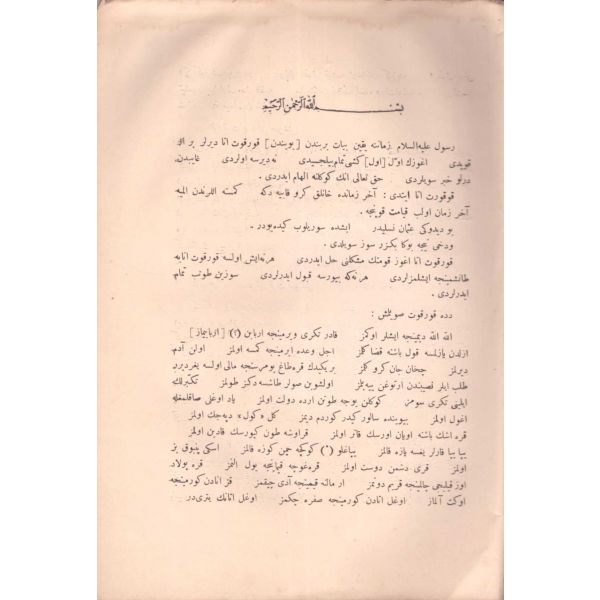 بسم الله الرحمن الرحيم
رسول عليه السلام زماننه يقين بيات بربندن [بويندن] قورقوت اتا ديرلر بر ار
قوپدى اغوزك اول [اول] كشى تمام بيلجيسيدى نه ديرسه اولردى غايبدن
درلو خبر سويلردى حق تعالى انك كوكلنه الهام ايدردى .
قوقورت اتا ايتدى : آخر زمانده خانلق كرو قاييه دكه كمسنه اللرندن الميه
آخر زمان اولب قيامت قوپنجه .
بو ديدوكى عثمان نسليدر ايشده سوريلوب كيده يودر .
ودخى نيجه بوكا بكزر سوز سويلدى .
قورقوت اتا اغوز قومنك مشكلنى حل ايدردى هر نه ايش اولسه قورقوت اتايه
طانشمينجه ايشلمزلردى هر نه كه بيورسه قبول ايدرلردى سوزين طوتب تمام
ايدرلردى .
دده قورقوت صويلمش :
الله الله ديمينجه ايشلر اوكمز قادر تكرى ويرمينجه ار بايمز (؟) [ار بايماز]
ازلدن يازلسه قول باشنه قضا كلمز اجل وعده ايرمينجه كمسه اولمز اولن آدم
ديرلمز چيخان جان كرو كلمز بر يكيدك قره طاغ يومرسنجه مالى اولسه يغر ديرر
طلب ايلر نصيبندن ارتوغن ييه بلمز اولشوبن صولر طاشسه دكز طولمز تكبرلك
ايليى تكرى سومز كوكلن يوجه طوتن ارده دولت اولمز ياد اوغلى صاقلمغله
اغول اولمز بيوينده سالور كيدر كوردم ديمز كل «كول» دپه جك اولمز
قره اشك باشنه اويان اورسك قاتر اولمز قراوشه طون كيورسك قادين اولمز
ياپا ياپا قارلر يغسه يازه قالمز ياپاغلو (*) كوكچه چمن كوزه قالمز اسكى پنبوق بز
اولمز قرى دشمن دوست اولمز قره غوچه قيمينجه يول النمز قره پولاد
اوز قيلجى چالمينجه قريم دونمز ار مالنه قيمينجه آدى چيقمز قز انادن كورمينجه
اوكت آلماز اوغل اتادن كورمينجه صفره چكمز اوغل اتانك يتريدر